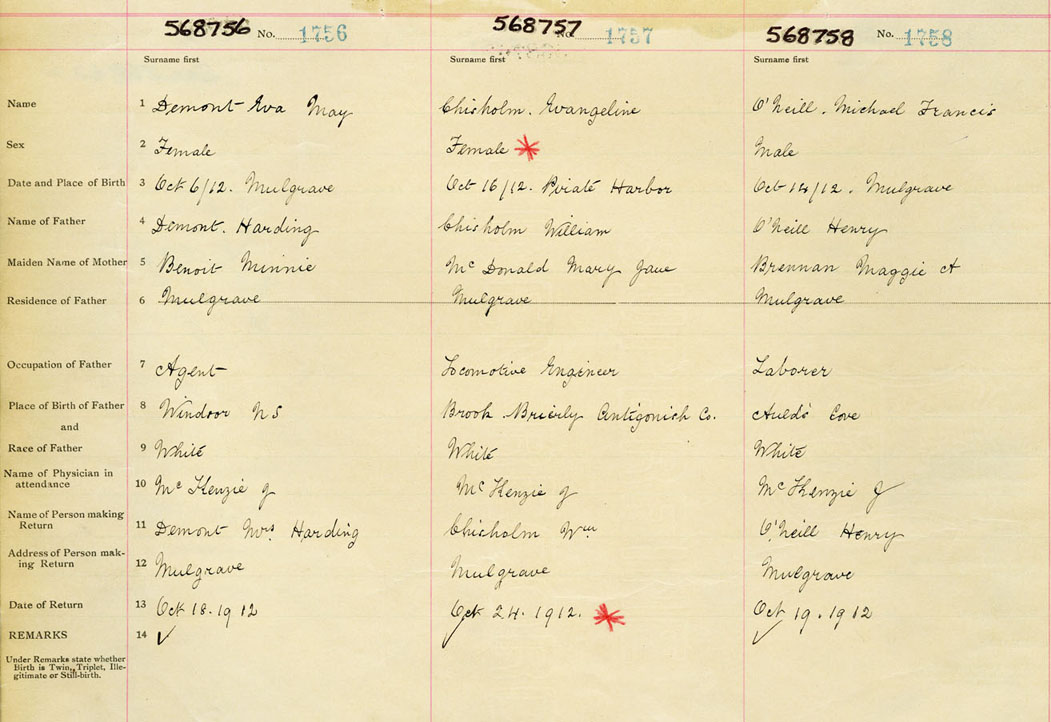 568756 No. 1756 568757 No. 1757 568758 No. 1758
Surname first Surname first Surname first
Name 1 Demont Eva May Chisholm. Evangeline O'Neill. Michael Francis
Sex 2 Female Female Male
Date and Place of Birth 3 Oct 6/12. Mulgrave Oct 16/12. Pirate Harbor Oct 14/12. Mulgrave
Name of Father 4 Demont. Harding Chisholm William O'Neill Henry
Maiden Name of Mother 5 Benoit Minnie Mc Donald Mary Jane Brennan Maggie A
Residence of Father 6 Mulgrave Mulgrave Mulgrave
Occupation of Father 7 Agent Locomotive Engineer Laborer
Place of Birth of Father 8 Windsor N S Brook Brierly Antigonish Co. Auld's Cove
and
Race of Father 9 White White White
Name of Physician in
attendance 10 Mc Kenzie J Mc Kenzie J Mc Kenzie J
Name of Person making
Return 11 Demont Mrs Harding Chisholm Wm O'Neill Henry
Address of Person mak-
ing Return 12 Mulgrave Mulgrave Mulgrave
Date of Return 13 Oct 18. 1912 Oct 24. 1912. Oct 19. 1912
REMARKS 14
Under Remarks state whether
Birth is Twin, Triplet, Ille-
gitimate or Still-birth.